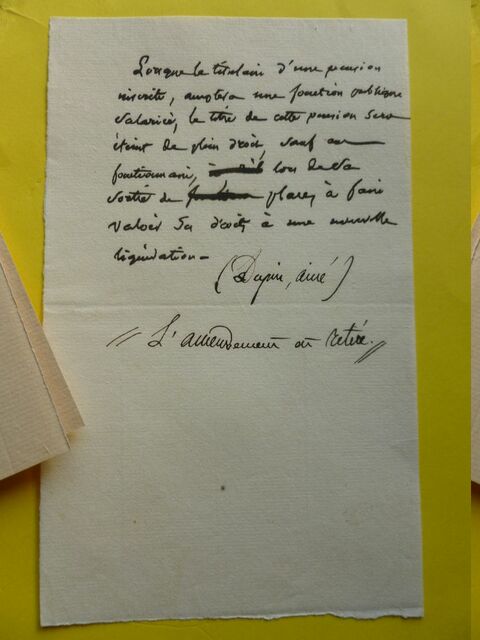 Lorsque le titulaire d'une pension
inscrite, acceptera une fonction publique
salariée, le titre de cette pension sera
éteint de plein droit, sauf au
fonctionnaire, lors de sa
sortie de place, à faire
valoir ses droits à une nouvelle
liquidation -
(Dupin, ainé)
// L'amendement est retiré. //